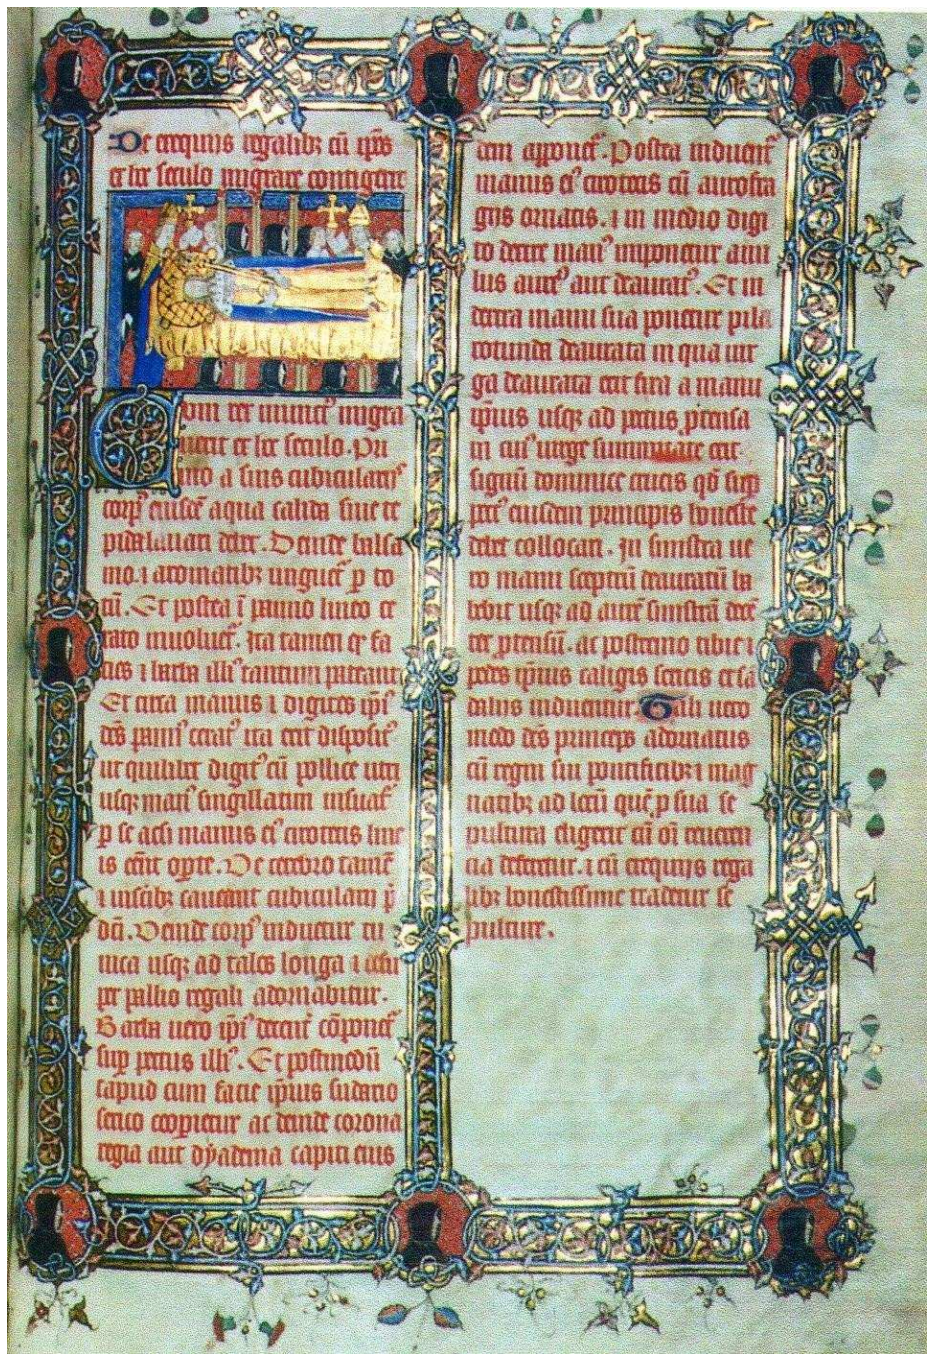 De exequijs regalibz cū ip̄os
ex hoc seculo migrare contigerit
Cum rex inunct9 migra
uerit ex hoc seculo. Pri
mo a suis cubiculari9
corp9 eiusdē aqua calida siue te
pida lauari debet. Deinde balsa
mo ⁊ aromatibz unguet᷑ p to
tū. Et postea ī panno lineo ce
rato inuoluet᷑. Ita tamen qͥ fa
cies ⁊ barba illi9 tantum pateant
Et circa manus ⁊ digitos ipsi9
dc̄s pann9 cerat9 ita erit disposit9
ut quilibet digit9 cū pollice
usqz man9 singillatim insuat᷑
p se acsi manus ei9 cirotecis line
is eēnt opte. De cerebro tamē
⁊ uiscibz caueant cubicularij p̄
dc̄i. Deinde corp9 induetur tu
nica usqz ad talos longa ⁊ desu
per pallio regali adornabitur.
Barba uero ip̄i9 decent᷑ cōponet᷑
sup pectus illi9. Et postmodū
capud cum facie ip̄ius sudario
serico coopietur ac deinde corona
regia aut dyadema capiti eius
dem apponet᷑. Postea induent᷑
manus ei9 cirotecis cū aurifra
gijs ornatis. ⁊ in medio digi
to dextre man9 imponetur anu
lus aure9 aut deaurat9. Et in
dextra manu sua ponetur pila
rotunda deaurata in qua uir
ga deaurata erit fixa a manu
ip̄ius usqz ad pectus p̱tensa
in cui9 uirge summitate erit
signū dominice crucis qd̄ sup
pect9 eiusdem principis honeste
debet collocari. In sinistra ue
ro manu sceptrū deauratū ha
bebit usqz ad aurē sinistrā dec̄
ter p̱tensū. ac postremo tibie ⁊
pedes ip̄ius caligis sericis et sā
dalijs induentur. Tali uero
modo dc̄s princeps adornatus
cū regni sui pontificibz ⁊ mag
natibz ad locū quē p sua se
pultura eligerit cū oī reueren
cia deferetur. ⁊ cū exequijs rega
libz honestissime tradetur se
pulture.